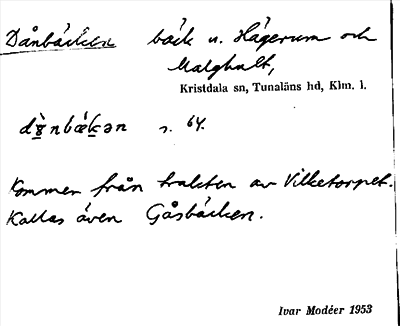 Dånbäcken bäck u. Hägerum och
Malghult,
Kristdala sn, Tunaläns hd, Klm. l.
s. 64.
Kommer från trakten av Vilketorpet.
Kallas även Gåsbäcken.
Ivar Modéer 1953